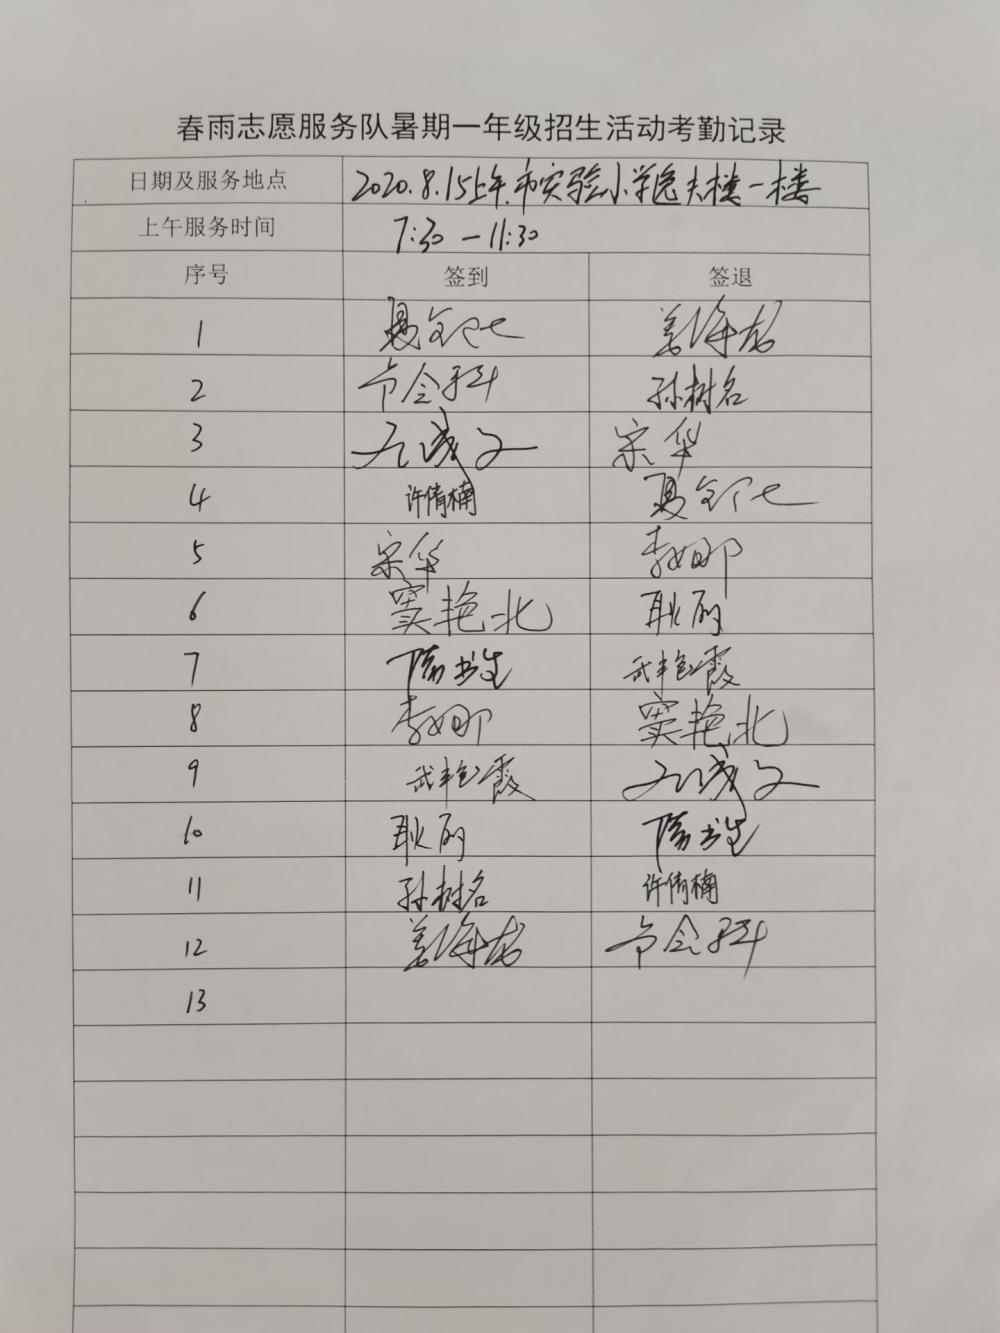 春雨志愿服务队暑期一年级招生活动考勤记录
日期及服务地点 2020.8.15上午.市实验小学逸夫楼一楼
上午服务时间 7:30—11:30
序号 签到 签退
1
2 孙树名
3 宋华
4 许倩楠
5 宋华 李娜
6 窦艳北 耿丽
7 隋书生 武丰霞
8 李娜 窦艳北
9 武丰霞
10 耿丽 隋书生
11 孙树名 许倩楠
12
13